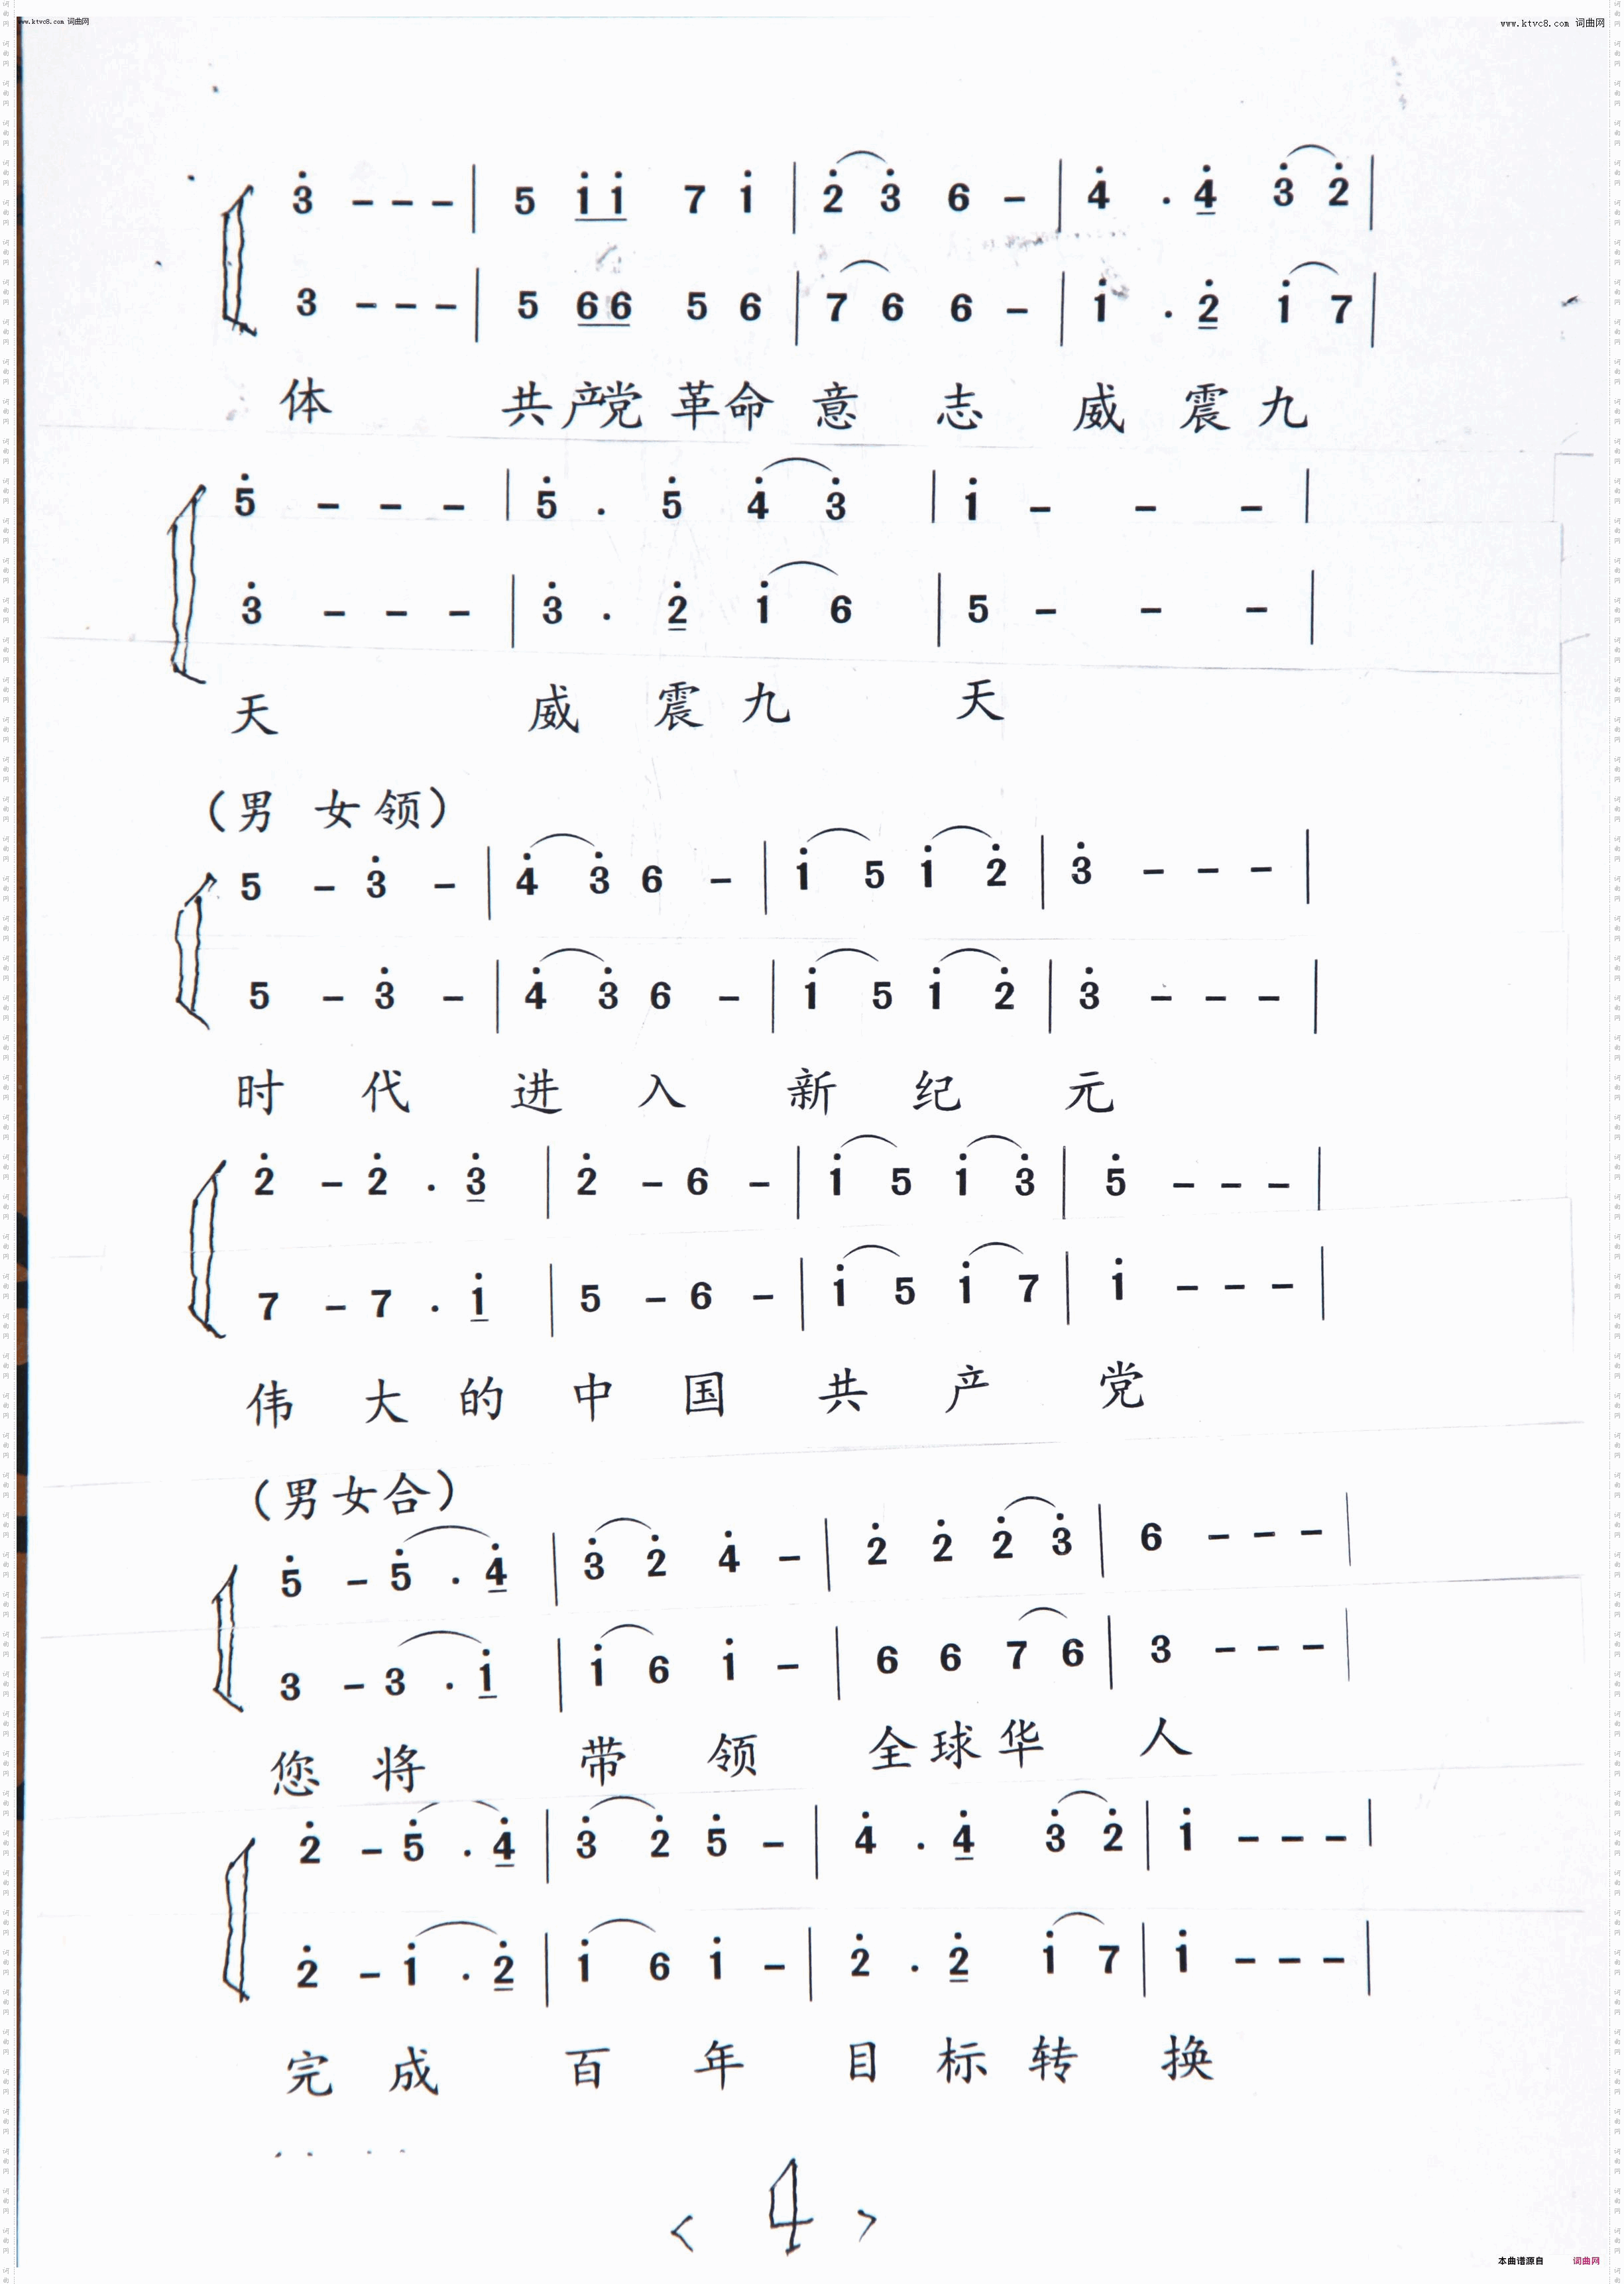 www.ktvc8.com 词曲网
www.ktvc8.com 词曲网
3̇ - - - | 5 1̇1̇ 7 1̇ | 2̇ 3̇ 6 - | 4̇ . 4̇ 3̇ 2̇ |
3 - - - | 5 66 5 6 | 7 6 6 - | 1̇ . 2̇ 1̇ 7 |
体 共产党 革命 意 志 威 震 九
5̇ - - - | 5̇ . 5̇ 4̇ 3̇ | 1̇ - - - |
3̇ - - - | 3̇ . 2̇ 1̇ 6 | 5 - - - |
天 威 震 九 天
(男 女领)
5 - 3̇ - | 4̇ 3̇ 6 - | 1̇ 5 1̇ 2̇ | 3̇ - - - |
5 - 3̇ - | 4̇ 3̇ 6 - | 1̇ 5 1̇ 2̇ | 3̇ - - - |
时 代 进 入 新 纪 元
2̇ - 2̇ . 3̇ | 2̇ - 6 - | 1̇ 5 1̇ 3̇ | 5̇ - - - |
7 - 7 . 1̇ | 5 - 6 - | 1̇ 5 1̇ 7 | 1̇ - - - |
伟 大 的 中 国 共 产 党
(男女合)
5̇ - 5̇ . 4̇ | 3̇ 2̇ 4̇ - | 2̇ 2̇ 2̇ 3̇ | 6 - - - |
3 - 3 . 1̇ | 1̇ 6 1̇ - | 6 6 7 6 | 3 - - - |
您 将 带 领 全 球 华 人
2̇ - 5̇ . 4̇ | 3̇ 2̇ 5̇ - | 4̇ . 4̇ 3̇ 2̇ | 1̇ - - - |
2̇ - 1̇ . 2̇ | 1̇ 6 1̇ - | 2̇ . 2̇ 1̇ 7 | 1̇ - - - |
完 成 百 年 目 标 转 换
< 4 >
本曲谱源自 词曲网